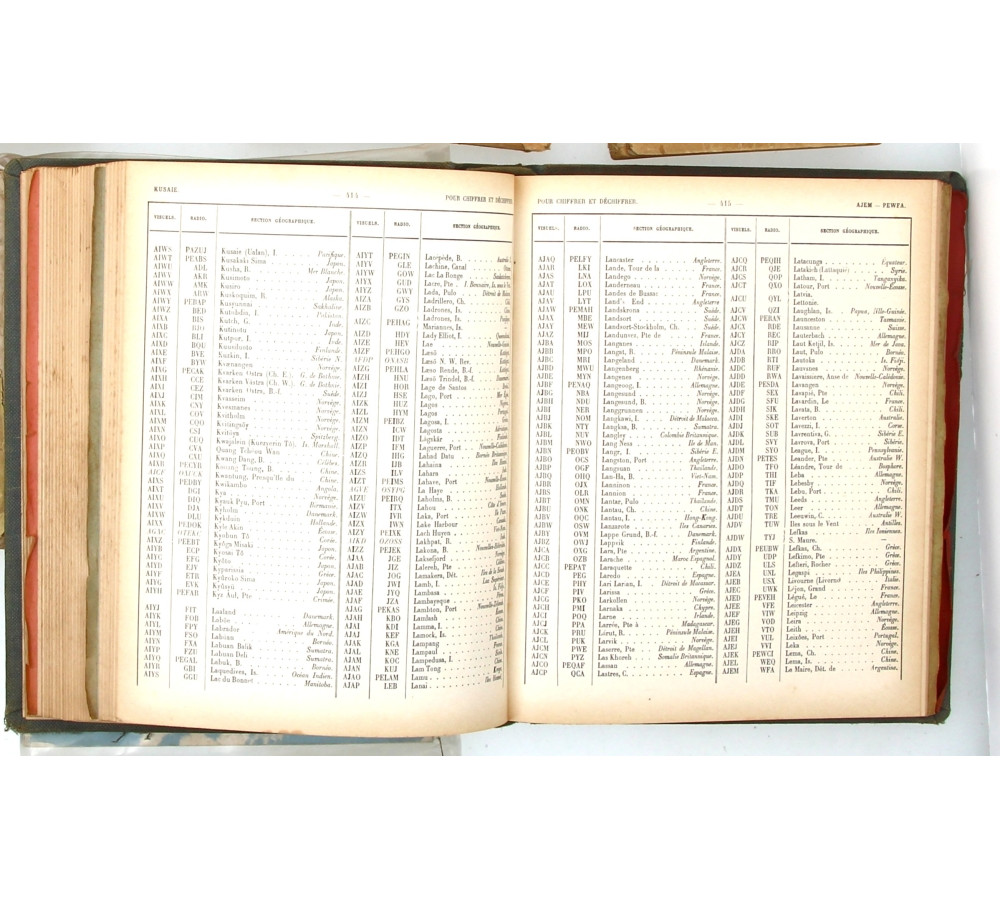 KUSAIE.
— 414 —
POUR CHIFFRER ET DÉCHIFFRER
VISUELS. RADIO. SECTION GÉOGRAPHIQUE.
AIWS PAZUJ Kusaie (Ualan), I. Pacifique.
AIWT PEABS Kusakaki Sima Japon.
AIWU ADL Kusha, R. Mer Blanche.
AIWV AKR Kusimoto Japon.
AIWW AMK Kusiro Japon.
AIWX ARW Kuskoquim, R. Alaska.
AIWY PEBAP Kusyunnai Sakhaline.
AIWZ BED Kutubdia, I. Pakistan.
AIXA BIS Kutch, G. Inde.
AIXB BJO Kutinotu Japon.
AIXC BLI Kutpur, I. Inde.
AIXD BQU Kuusiluoto Finlande.
AIXE BVE Kuzkin, I. Sibérie N.
AIXF BYW Kvænangen Norvège.
AIXG PECAK Kvarken Ostra (Ch. E.). G. de Bothnie.
AIXH CCE Kvarken Vastra (Ch. W.). G. de Bothnie.
AIXI CEZ Kvarken Ostre, B.-f. Suède.
AIXJ CIM Kvasseim Norvège.
AIXK CNY Kvesmanes Norvège.
AIXL COV Kvitholm Norvège.
AIXM CQO Kvitingsöy Norvège.
AIXN CSI Kvitöya Spitzberg.
AIXO CUQ Kwajalein (Kuezyerin Tô). Is. Marshall.
AIXP CVA Quang Tchéou Wan Chine.
AIXQ CXU Kwang Dang, B. Célèbes.
AIXR PECYR Kwang Toung, B. Chine.
Kwantung, Presqu'île du Chine.
AIXS PEDBY Kwikambo Angola.
AIXT DGI Kya Norvège.
AIXU DIQ Kyauk Pyu, Port Birmanie.
AIXV DJA Kyholm Danemark.
AIXW DLU Kykduin Hollande.
AIXX DSE Kyle Akin Écosse.
AIXY PEDOK Kyobun Tô Corée.
AIXZ PEEBT Kyôga Misaki Japon.
AIYB ECP Kyosai Tô Corée.
AIYC EFG Kyôto Japon.
AIYD EJV Kyparissia Grèce.
AIYF ETB Kyûroko Sima Japon.
AIYG EVK Kyûsyû Japon.
AIYH PEFAR Kyz Aul, Pte Crimée.
AIYJ FIT Laaland Danemark.
AIYK FOB Labôe Allemagne.
AIYL FPY Labrador Amérique du Nord.
AIYM FSQ Labuan Bornéo.
AIYN FXA Labuan Bolik Sumatra.
AIYP FZH Labuan Deli Sumatra.
AIYQ PEGAL Labuk, B. Bornéo.
AIYR GBI Laquedives, Is. Océan Indien.
AIYS GGU Lac du Bonnet Manitoba.
VISUELS. RADIO. SECTION GÉOGRAPHIQUE.
AIYT PEGIN Lacépède, B.
AIYV GLE Lachine, Canal
AIYW GOW Lac La Ronge
AIYX GUD Lacre, Pte
AIYZ GWY Lady, Pulo
AIZA GYS Ladrillero, Ch.
AIZB GZO Ladrones, Is.
AIZC PEHAG Ladrones, Is.
Mariannes, Is.
AIZD HDY Lady Elliot, I.
AIZE HEV Lae
AIZF PEHGO Læsö
AFDP ONASH Læsö N. W. Rev.
AIZG PEHLA Læsö Rende, B.-f.
AIZH HNU Læsö Trindel, B.-f.
AIZI HOR Lage de Santos
AIZJ HSE Lago, Port
AIZK HUZ Lagos
AIZL HYM Lagos
AIZM PEIBZ Lagosa, I.
AIZN ICW Lagosta
AIZO IDT Lågskär
AIZP IFM Laguerre, Port
AIZQ IHG Lahad Datu
AIZR IJB Lahaina
AIZS ILV Lahara
AIZT PEIMS Lahave, Port
AGVE OSYPG La Haye
AIZU PEIRQ Laholms, B.
AIZV ITX Lahou
AIZW IVR Laka, Port
AIZX IWN Lake Harbour
AIZY PEIXK Lach Huyen
AIKD OZOSS Lakhpat, R.
AIZZ PEJEK Lakona, B.
AJAA JGE Laksefjord
AJAB JIZ Lalereh, Pte
AJAC JOG Lamakera, Dét.
AJAD JWI Lamb, I.
AJAE JYQ Lambasa
AJAF JZA Lambayeque
AJAG PEKAS Lambton, Port
AJAH KBO Lambuh
AJAI KDI Lamma, I.
AJAJ KEF Lamock, Is.
AJAK KGA Lampang
AJAL KNE Lampaul
AJAM KOC Lampedusa, I.
AJAN KUJ Lam Tong
AJAO PELAM Lamu
AJAP LEB Lanai
POUR CHIFFRER ET DÉCHIFFRER.
— 415 —
AJEM — PEWFA.
VISUELS. RADIO. SECTION GÉOGRAPHIQUE.
AJAQ PELFY Lancaster Angleterre.
AJAR LKI Lande, Tour de la France.
AJAS LNA Landego Norvège.
AJAT LOX Landerneau France.
AJAU LPU Landes de Bussac France.
AJAV LYT Land's End Angleterre.
AJAW PEMAH Landskrona Suède.
AJAX MBE Landsort Suède.
AJAY MEW Landsort-Stockholm, Ch. Suède.
AJAZ MIJ Landunvez, Pte de France.
AJBA MOS Langanes Islande.
AJBB MPO Langat, R. Péninsule Malaise.
AJBC MRI Langeland Danemark.
AJBD MWU Langenberg Rhénanie.
AJBE MYN Langenes Norvège.
AJBF PENAQ Langeoog, I. Allemagne.
AJBG NBA Langesund Norvège.
AJBH NDU Langesund, B. Norvège.
AJBI NER Langgrunnen Norvège.
AJBJ NOM Langkawi, I. Détroit de Malacca.
AJBK NTY Langkoa, B. Sumatra.
AJBL NUV Langley Colombie Britannique.
AJBM NWQ Lang Ness Ile de Man.
AJBN PEOBV Langr, I. Sibérie E.
AJBO OCS Langston, Port Angleterre.
AJBP OGF Langsuan Thaïlande.
AJBQ OHQ Lan-Ha, B. Viet-Nam.
AJBR OJX Lanninon France.
AJBS OLR Lannion France.
AJBT OMN Lantar, Pulo Thaïlande.
AJBU ONK Lantau, Ch. Chine.
AJBV OQC Lantao, I. Hong-Kong.
AJBW OSW Lanzarote Iles Canaries.
AJBY OVM Lappe Grund, B.-f. Danemark.
AJBZ OWJ Lapprik Finlande.
AJCA OXG Lara, Pte Argentine.
AJCB OZB Larache Maroc Espagnol.
AJCC PEPAT Laraquette Chili.
AJCD PEG Laredo Espagne.
AJCE PHY Lari Laruan, I. Détroit de Macassar.
AJCF PIV Larissa Grèce.
AJCG PKO Larkollen Norvège.
AJCH PMI Larnaka Chypre.
AJCI POQ Larne Irlande.
AJCJ PPA Larrée, Pte à Madagascar.
AJCK PRU Larut, B. Péninsule Malaise.
AJCL PUK Larvik Norvège.
AJCM PWE Laserre, Pte Détroit de Magellan.
AJCN PYZ Las Khoreh Somalie Britannique.
AJCO PEQAF Lassan Allemagne.
AJCP QCA Lastres, C. Espagne.
VISUELS. RADIO. SECTION GÉOGRAPHIQUE.
AJCQ PEQHI Latacunga Équateur.
AJCR QJE Latakieh (Lattaquié) Syrie.
AJCS QOP Latham, I. Tanganyika.
AJCT QXO Latour, Port Nouvelle-Écosse.
AJCU QYL Latvia.
Lettonie.
AJCV QZI Laughlan, Is. Papua, Nlle-Guinée.
AJCW PERAN Launceston Tasmanie.
AJCX RDE Lausanne Suisse.
AJCY REC Lauterbach Allemagne.
AJCZ RIP Laut Ketjil, Is. Mer de Java.
AJDA RRO Laut, Pulo Bornéo.
AJDB RTI Lautoka Is. Fidji.
AJDC RUF Lauvsnes Norvège.
AJDD RWA Lavaissière, Anse de Nouvelle-Calédonie.
AJDE PESDA Lavangen Norvège.
AJDF SEX Lavapié, Pte Chili.
AJDG SFU Lavardin, Le France.
AJDH SIK Lavata, B. Chili.
AJDI SKE Laverton Australie.
AJDJ SOT Lavezzi, I. Corse.
AJDK SUB Lavrentiya, G. Sibérie E.
AJDL SVY Lavrova, Port Sibérie.
AJDM SYO League, I. Pennsylvanie.
AJDN PETES Leander, Pte Australie W.
AJDO TFO Léandre, Tour de Bosphore.
AJDP THI Leba Allemagne.
AJDQ TIF Lebesby Norvège.
AJDR TKA Lebu, Port Chili.
AJDS TMU Leeds Angleterre.
AJDT TON Leer Allemagne.
AJDU TRE Leeuwin, C. Australie W.
AJDV TUW Iles sous le Vent Antilles.
AJDW TYJ Lefkas Iles Ioniennes.
S. Maure. —
AJDX PEUBW Lefkas, Ch. Grèce.
AJDY UDP Lefkimo, Pte Grèce.
AJDZ ULS Lefteri, Rocher Grèce.
AJEA UNL Legaspi Iles Philippines.
AJEB USX Livourne (Livorno) Italie.
AJEC UWK Léjon, Grand France.
AJED PEVEH Légué, Le France.
AJEE VFE Leicester Angleterre.
AJEF VIW Leipzig Allemagne.
AJEG VOD Leira Norvège.
AJEH VTO Leith Écosse.
AJEI VUL Leixões, Port Portugal.
AJEJ VVI Leka Norvège.
AJEK PEWCJ Lema, Ch. Chine.
AJEL WEQ Lema, Is. Chine.
AJEM WFA Le Maire, Dét. de Argentine.